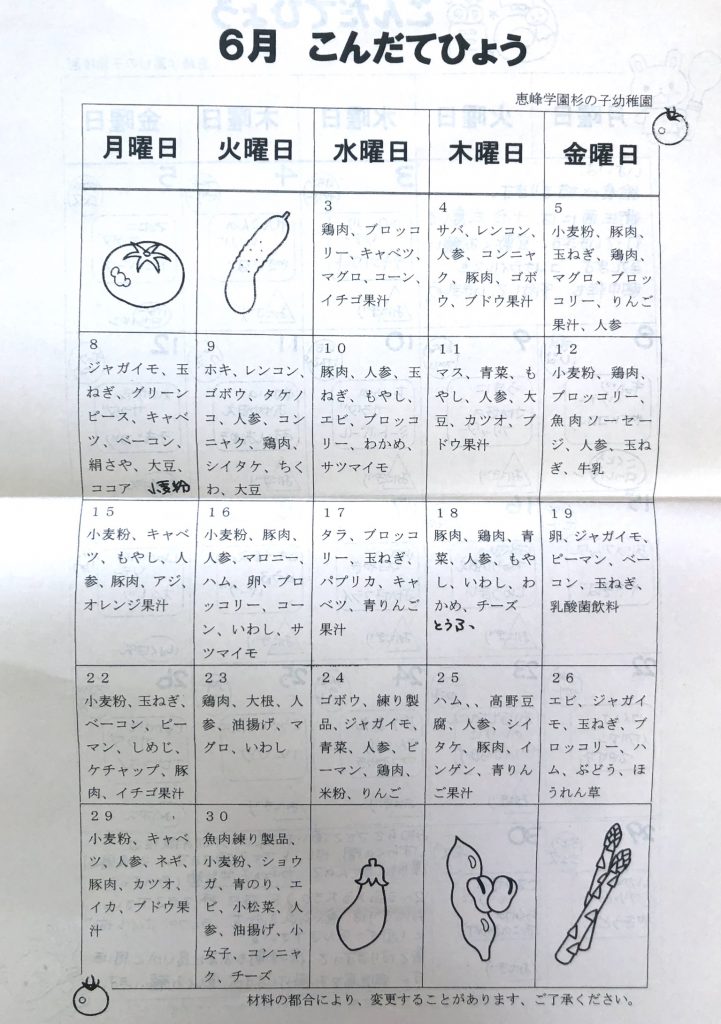 6月 こんだてひょう
恵峰学園杉の子幼稚園
月曜日 火曜日 水曜日 木曜日 金曜日
3
鶏肉、ブロッコ
リー、キャベツ、
マグロ、コーン、
イチゴ果汁
4
サバ、レンコン、
人参、コンニャ
ク、豚肉、ゴボ
ウ、ブドウ果汁
5
小麦粉、豚肉、
玉ねぎ、鶏肉、
マグロ、ブロッ
コリー、りんご
果汁、人参
8
ジャガイモ、玉
ねぎ、グリーン
ピース、キャベ
ツ、ベーコン、
絹さや、大豆、
ココア 小麦粉
9
ホキ、レンコン、
ゴボウ、タケノ
コ、人参、コン
ニャク、鶏肉、
シイタケ、ちく
わ、大豆
10
豚肉、人参、玉
ねぎ、もやし、
エビ、ブロッコ
リー、わかめ、
サツマイモ
11
マス、青菜、も
やし、人参、大
豆、カツオ、ブ
ドウ果汁
12
小麦粉、鶏肉、
ブロッコリー、
魚肉ソーセー
ジ、人参、玉ね
ぎ、牛乳
15
小麦粉、キャベ
ツ、もやし、人
参、豚肉、アジ、
オレンジ果汁
16
小麦粉、豚肉、
人参、マロニー、
ハム、卵、ブロ
ッコリー、コー
ン、いわし、サ
ツマイモ
17
タラ、ブロッコ
リー、玉ねぎ、
パプリカ、キャ
ベツ、青りんご
果汁
18
豚肉、鶏肉、青
菜、人参、もや
し、いわし、わ
かめ、チーズ
とうふ、
19
卵、ジャガイモ、
ピーマン、ベー
コン、玉ねぎ、
乳酸菌飲料
22
小麦粉、玉ねぎ、
ベーコン、ピー
マン、しめじ、
ケチャップ、豚
肉、イチゴ果汁
23
鶏肉、大根、人
参、油揚げ、マ
グロ、いわし
24
ゴボウ、練り製
品、ジャガイモ、
青菜、人参、ピ
ーマン、鶏肉、
米粉、りんご
25
ハム、、高野豆
腐、人参、シイ
タケ、豚肉、イ
ンゲン、青りん
ご果汁
26
エビ、ジャガイ
モ、玉ねぎ、ブ
ロッコリー、ハ
ム、ぶどう、ほ
うれん草
29
小麦粉、キャベ
ツ、人参、ネギ、
豚肉、カツオ、
イカ、ブドウ果
汁
30
魚肉練り製品、
小麦粉、ショウ
ガ、青のり、エ
ビ、小松菜、人
参、油揚げ、小
女子、コンニャ
ク、チーズ
材料の都合により、変更することがあります、ご了承ください。